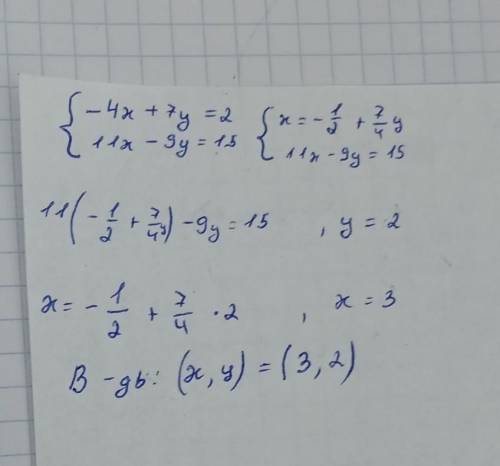 { -4x + 7y = 2 { x = -1/2 + 7/4 y
{ 11x - 9y = 15 { 11x - 9y = 15
11(-1/2 + 7/4 y) - 9y = 15 , y = 2
x = -1/2 + 7/4 · 2 , x = 3
В-дь: (x, y) = (3, 2)